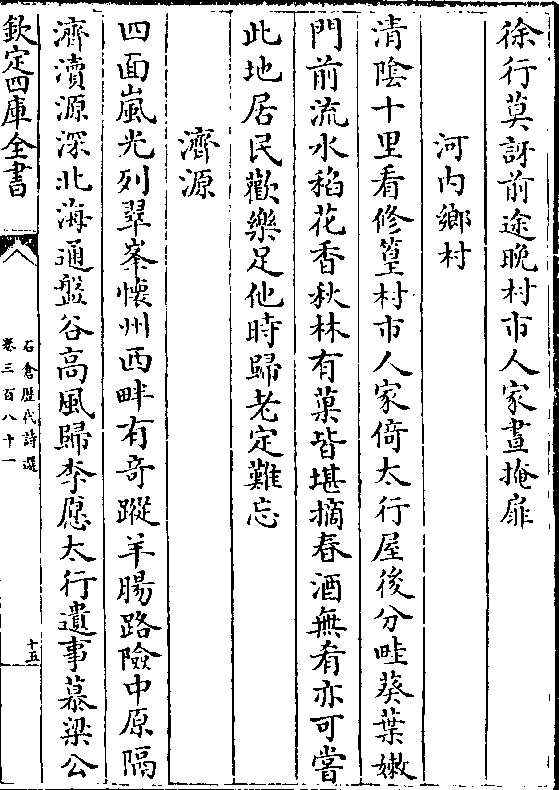 徐行莫訝前途晚村市人家晝掩扉
河内鄉村
清陰十里看修篁村市人家倚太行屋後分畦葵葉嫩
門前流水稻花香秋林有菓皆堪摘春酒無肴亦可嘗
此地居民歡樂足他時歸老定難忘
濟源
四面嵐光列翠峯懷州西畔有竒蹤羊腸路險中原隔
濟瀆源深北海通盤谷高風歸李愿太行遺事慕梁公
欽定四庫全書
石倉歴代詩選
卷三百八十一
十五